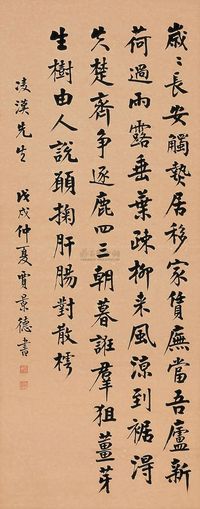 歲歲長安觸熱居移家賃廡當吾廬新
荷過雨露垂葉疎柳来風涼到裾得
失楚齊爭逐鹿四三朝暮誑羣狙薑芽
生樹由人説願掬肝腸對散樗
凌漢先生
戊戌仲夏賈景德書